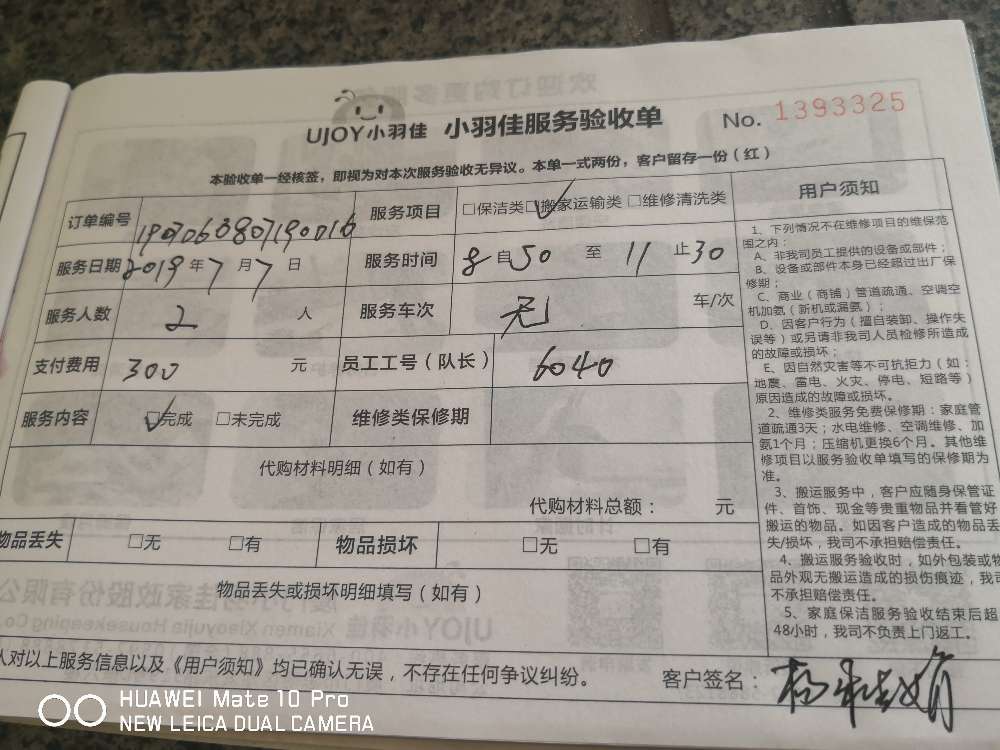 UJOY小羽佳 小羽佳服务验收单 No. 1393325
本验收单一经核签，即视为对本次服务验收无异议。本单一式两份，客户留存一份（红）
订单编号 服务项目 □保洁类 □搬家运输类 □维修清洗类
服务日期 2019 年 7 月 7 日 服务时间 8 自 50 至 11 止 30
服务人数 2 人 服务车次 无 车/次
支付费用 300 元 员工工号（队长） 6040
服务内容 □完成 □未完成 维修类保修期
代购材料明细（如有）
代购材料总额： 元
物品丢失 □无 □有 物品损坏 □无 □有
物品丢失或损坏明细填写（如有）
人对以上服务信息以及《用户须知》均已确认无误，不存在任何争议纠纷。
客户签名：
用户须知
1、下列情况不在维修项目的维保范
围之内：
A、非我司员工提供的设备或部件；
B、设备或部件本身已经超过出厂保
修期；
C、商业（商铺）管道疏通、空调空
机加氨（新机或漏氨）；
D、因客户行为（擅自装卸、操作失
误等）或另请非我司人员检修所造成
的故障或损坏；
E、因自然灾害等不可抗拒力（如：
地震、雷电、火灾、停电、短路等）
原因造成的故障或损坏。
2、维修类服务免费保修期：家庭管
道疏通3天；水电维修、空调维修、加
氨1个月；压缩机更换6个月。其他维
修项目以服务验收单填写的保修期为
准。
3、搬运服务中，客户应随身保管证
件、首饰、现金等贵重物品并看管好
搬运的物品。如因客户造成的物品丢
失/损坏，我司不承担赔偿责任。
4、搬运服务验收时，如外包装或物
品外观无搬运造成的损伤痕迹，我司
不承担赔偿责任。
5、家庭保洁服务验收结束后超
48小时，我司不负责上门返工。
HUAWEI Mate 10 Pro
NEW LEICA DUAL CAMERA